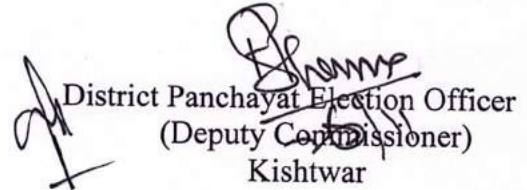 District Panchayat Election Officer
(Deputy Commissioner)
Kishtwar